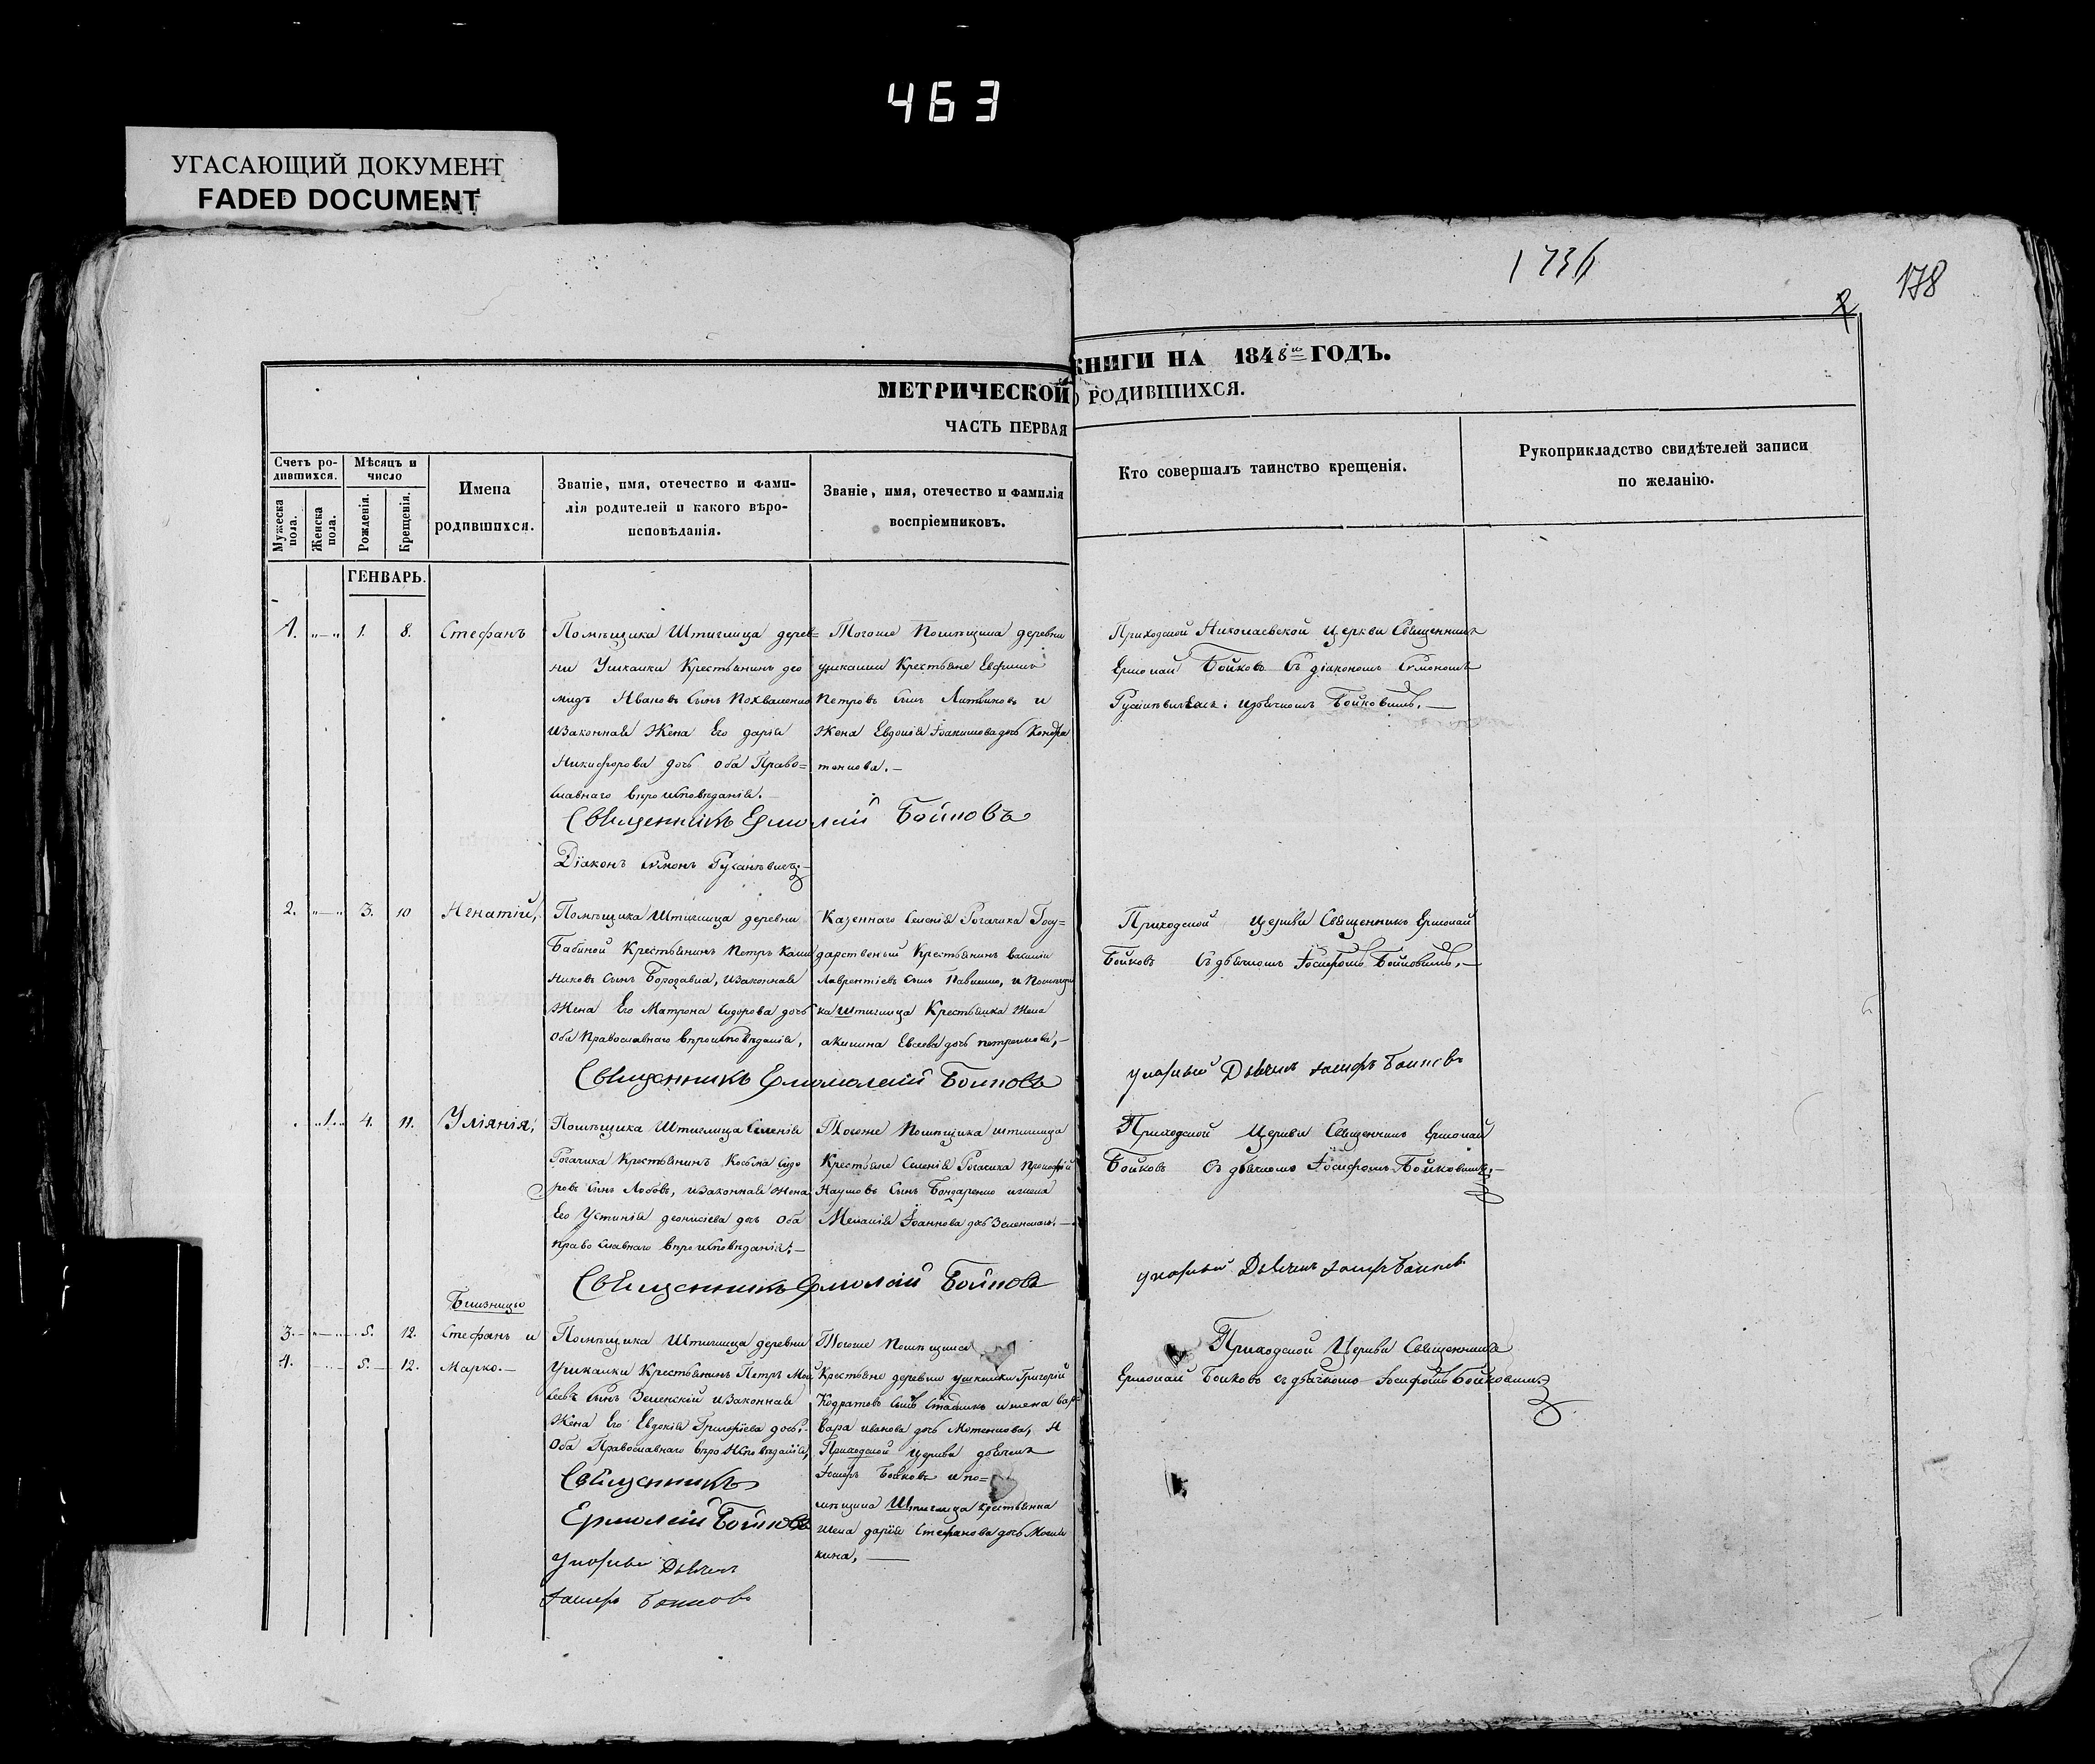 463
УГАСАЮЩИЙ ДОКУМЕНТ
FADED DOCUMENT
178
МЕТРИЧЕСКОЙ КНИГИ НА 1848й ГОДЪ.
ЧАСТЬ ПЕРВАЯ О РОДИВШИХСЯ.
Счетъ ро-
дившихся.
Мужеска пола.
Женска пола.
Мѣсяцъ и
число
Рожденія.
Крещенія.
Имена
родившихся.
Званіе, имя, отечество и фами-
лія родителей и какого вѣро-
исповѣданія.
Званіе, имя, отечество и фамилія
воспріемниковъ.
Кто совершалъ таинство крещенія.
Рукоприкладство свидѣтелей записи
по желанію.
ГЕНВАРЬ.
1. 1. 8. Стефанъ
Помѣщика Штиглица дерев=
ни Ушкалки Крестьянинъ део
мидъ Ивановъ Сынъ
изаконная Жена Его Дарія
Никифорова дочь оба Право=
славнаго вѣроисповѣданія.
Тогоже Помѣщика деревни
ушкалки Крестьяне Евфимъ
Петровъ Сынъ Литвиновъ и
Жена Евдокія дочь
Приходской Николаевской Церкви Священникъ
Ермолай Бойковъ Съ діакономъ Симономъ
Бойковымъ.
Священникъ Ермолай Бойковъ
Діаконъ Симонъ
2. 3. 10 Игнатій,
Помѣщика Штиглица деревни
Бабиной Крестьянинъ Петръ Кали
никовъ Сынъ изаконная
Жена Его Матрона Сидорова дочь
Оба Православнаго вѣроисповѣданія,
Казеннаго Селенія Рогачика Госу=
дарственый Крестьянинъ
Лаврентіевъ Сынъ и Помѣщи
ка Штиглица Крестьянка Жена
акилина Евсеева дочь
Приходской Церкви Священникъ Ермолай
Бойковъ Съ дьячкомъ Іосифомъ Бойковымъ.
Священникъ Ермолай Бойковъ
Дьячекъ Іосифъ Бойковъ
1. 4. 11. Уліянія,
Помѣщика Штиглица Селенія
Рогачика Крестьянинъ Косьма Сидо
ровъ Сынъ Лобовъ, изаконная Жена
Его Устинія деонисіева дочь Оба
православнаго вѣроисповѣданія.
Тогоже Помѣщика штиглица
Крестьяне Селенія Рогачика Прокофій
Наумовъ Сынъ Бондаренко ижена
Меланія Іоаннова дочь
Приходской Церкви Священникъ Ермолай
Бойковъ Съ дьячкомъ Іосифомъ Бойковымъ.
Священникъ Ермолай Бойковъ
Дьячекъ Іосифъ Бойковъ
Близнецы
3. 5. 12. Стефанъ и
4. 5. 12. Марко.
Помѣщика Штиглица деревни
Ушкалки Крестьянинъ Петръ Мои
сеевъ Сынъ Зеленскій изаконная
Жена Его Евдокія Григоріева дочь.
Оба Православнаго вѣроисповѣданія,
Тогоже Помѣщика
Крестьяне деревни ушкалки Григорій
Кодратовъ Сынъ ижена вар=
вара иванова дочь И
Приходской Церкви дьячекъ
Іосифъ Бойковъ ипо=
мѣщика Штиглица крестьянка
жена дарія Стефанова дочь
кина,
Приходской Церкви Священникъ
Ермолай Бойковъ съ дьячкомъ Іосифомъ Бойковымъ
Священникъ
Ермолай Бойковъ
Дьячекъ
Іосифъ Бойковъ